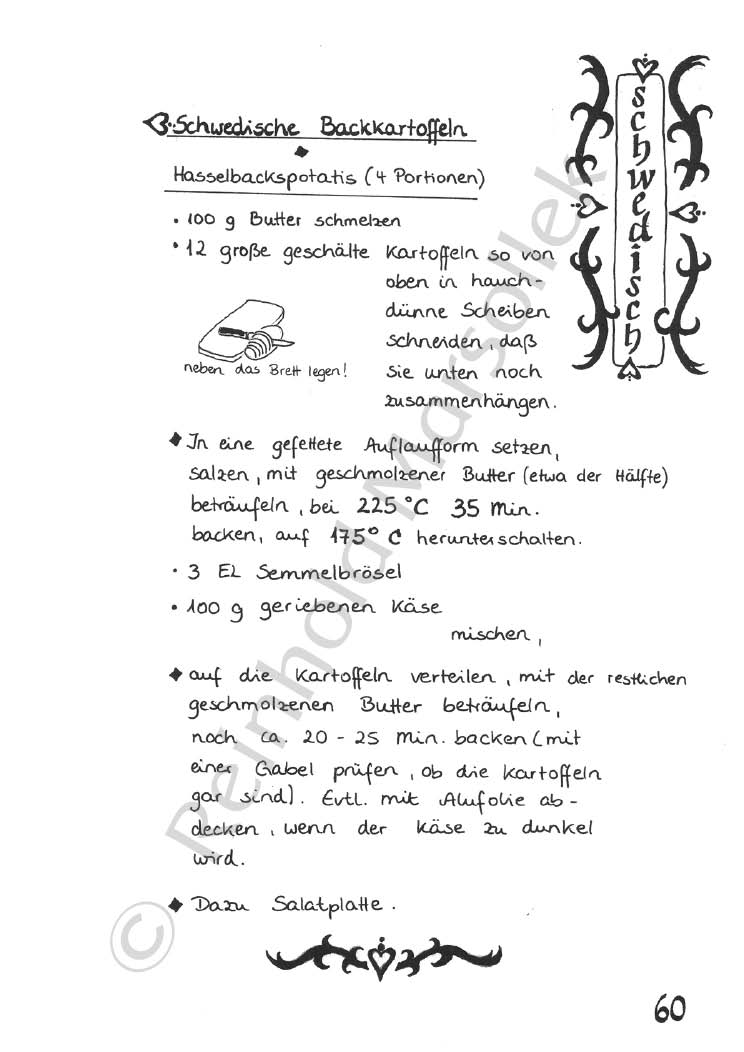 Schwedische Backkartoffeln
Hasselbackspotatis (4 Portionen)
• 100 g Butter schmelzen
• 12 große geschälte Kartoffeln so von
oben in hauch-
dünne Scheiben
schneiden, daß
sie unten noch
zusammenhängen.
neben das Brett legen!
◆ In eine gefettete Auflaufform setzen,
salzen, mit geschmolzener Butter (etwa der Hälfte)
beträufeln, bei 225 °C 35 Min.
backen, auf 175° C herunterschalten.
• 3 EL Semmelbrösel
• 100 g geriebenen Käse
mischen,
◆ auf die Kartoffeln verteilen, mit der restlichen
geschmolzenen Butter beträufeln,
noch ca. 20 - 25 Min. backen (mit
einer Gabel prüfen, ob die Kartoffeln
gar sind). Evtl. mit Alufolie ab-
decken, wenn der Käse zu dunkel
wird.
◆ Dazu Salatplatte.
schwedisch
© Reinhold Marsollek
60